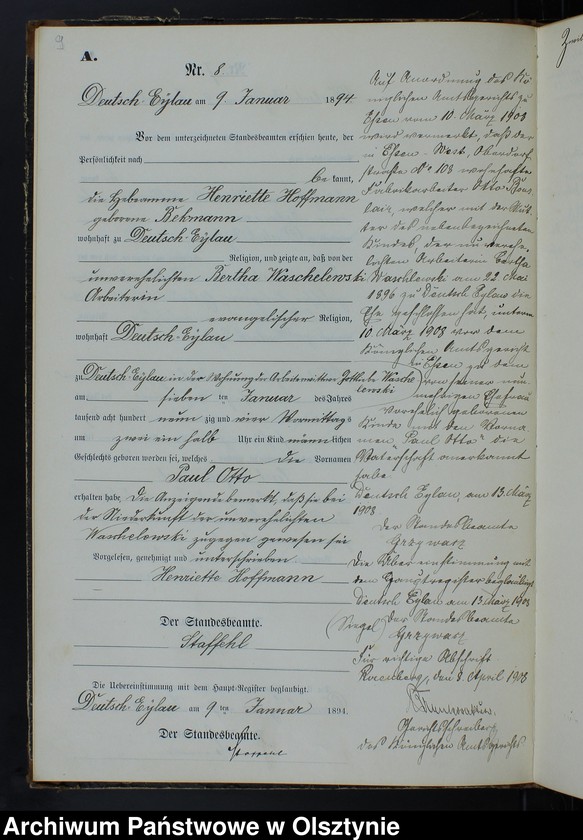 9
A.
Nr. 8.
Deutsch-Eylau am 9. Januar 1894.
Vor dem unterzeichneten Standesbeamten erschien heute, der
Persönlichkeit nach
bekannt,
die Hebeamme Henriette Hoffmann
geborene Bekmann
wohnhaft zu Deutsch-Eylau
Religion, und zeigte an, daß von der
unverehelichten Bertha Waschelewski
Arbeiterin
evangelischer Religion,
wohnhaft Deutsch-Eylau
zu Deutsch-Eylau in der Wohnung der Arbeiterwittwe Gottliebe Wasche
lewski
am sieben ten Januar des Jahres
tausend acht hundert neun zig und vier Vormittags
um zwei ein halb Uhr ein Kind männlichen
Geschlechts geboren worden sei, welches die Vornamen
Paul Otto
erhalten habe. Die Anzeigende bemerkt, daß sie bei
der Niederkunft der unverehelichten
Waschelowski zugegen gewesen sei
Vorgelesen, genehmigt und unterschrieben
Henriette Hoffmann
Der Standesbeamte.
Staffehl
Die Uebereinstimmung mit dem Haupt-Register beglaubigt.
Deutsch-Eylau am 9ten Januar 1894.
Der Standesbeamte.
Auf Anordnung des Kö
niglichen Amtsgerichts zu
Essen vom 10. März 1903
wird vermerkt, daß der
in Essen-West, Oberdorf
straße No 108 wohnhafte
Fabrikarbeiter Otto
welcher mit der Mut
ter des nebenbezeichneten
Kindes, der unverehe
lichten Arbeiterin Bertha
Waschlewski am 22. Mai
1896 zu Deutsch Eylau die
Ehe geschlossen hat, unterm
10. März 1903 vor dem
Königlichen Amtsgericht
zu Essen zu dem
von seiner nun
mehrigen Ehefrau
vorehelich geborenen
Kinde mit den Vorna
men "Paul Otto" die
Vaterschaft anerkannt
habe.
Deutsch Eylau, am 13. März
1903
Der Standesbeamte
Grzywacz
Die Übereinstimmung mit
dem Hauptregister beglaubigt
Deutsch Eylau am 13. März 1903
(Siegel) Der Standesbeamte
Grzywacz
Für richtige Abschrift
Rosenberg, den 8. April 1903
Gerichtsschreiber
des Königlichen Amtsgerichts
Archiwum Państwowe w Olsztynie